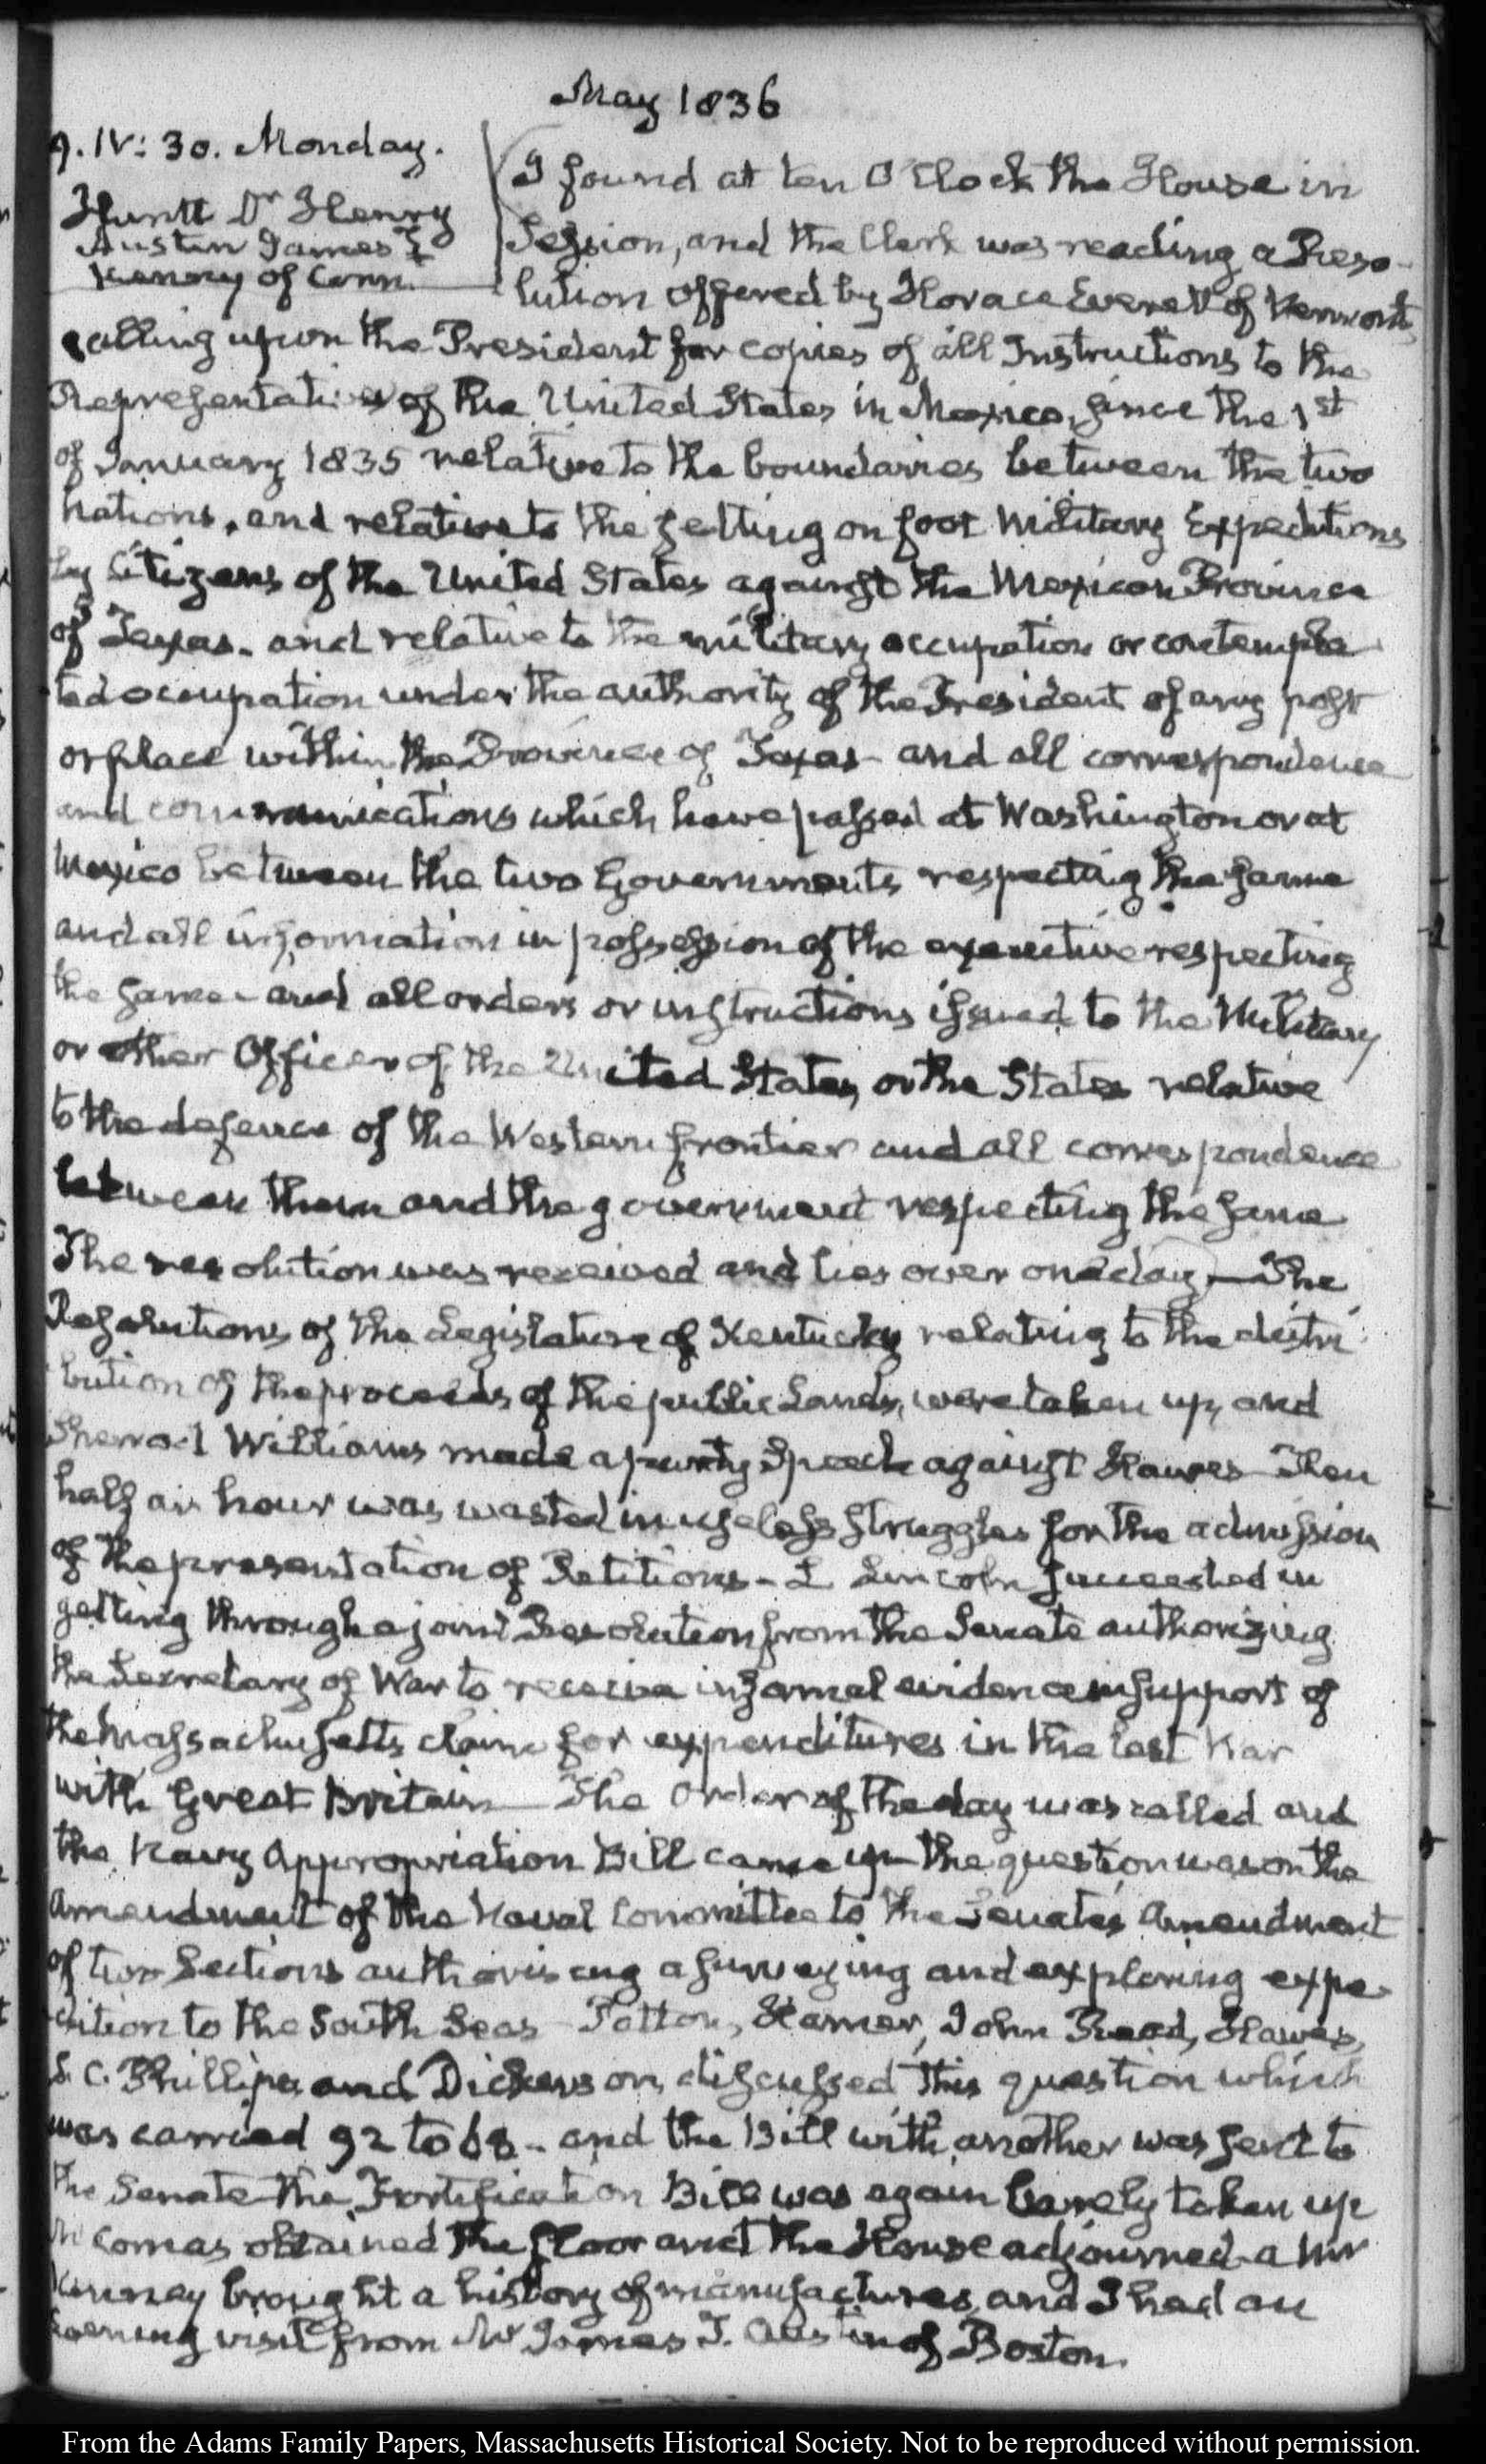 May 1836
9. IV: 30. Monday.
Huntt Dr Henry
Austin James T
Kenney of Conn.
I found at ten O'Clock the House in
Session, and the Clerk was reading a Reso-
lution offered by Horace Everett of Vermont,
calling upon the President for copies of all Instructions to the
Representatives of the United States in Mexico, since the 1st
of January 1835 relative to the boundaries between the two
Nations, and relative to the setting on foot Military Expeditions
by Citizens of the United States against the Mexican Province
of Texas. and relative to the military occupation or contempla
ted occupation under the authority of the President of any post
or place within the Province of Texas- and all correspondence
and communications which have passed at Washington or at
Mexico between the two Governments respecting the same
and all information in possession of the executive respecting
the same- and all orders or instructions issued to the Military
or other Officer of the United States, or the States relative
to the defence of the Western frontier and all correspondence
between them and the government respecting the same
The resolution was received and lies over one day)—The
Resolutions of the Legislature of Kentucky relating to the distri-
bution of the proceeds of the public Lands, were taken up, and
Sherrod Williams made a party Speech against Hawes- Then
half an hour was wasted in useless struggles for the admission
of the presentation of Petitions- L Lincoln succeeded in
getting through a joint Resolution from the Senate authorizing
the Secretary of War to receive informal evidence in support of
the Massachusetts claim for expenditures in the last War
with Great Britain—The Order of the day was called and
the Navy Appropriation Bill came up- the question was on the
Amendment of the Naval Committee to the Senate's Amendment
of two Sections authorising a surveying and exploring expe-
dition to the South Seas- Patton, Hamer, John Reed, Hawes,
S. C. Phillips and Dickerson, discussed this question which
was carried 92 to 68- and the Bill with another was sent to
the Senate- the Fortification Bill was again barely taken up
McComas obtained the floor and the House adjourned- a Mr
Kenney brought a history of manufactures, and I had an
Evening visit from Mr James T. Austin of Boston.
From the Adams Family Papers, Massachusetts Historical Society. Not to be reproduced without permission.